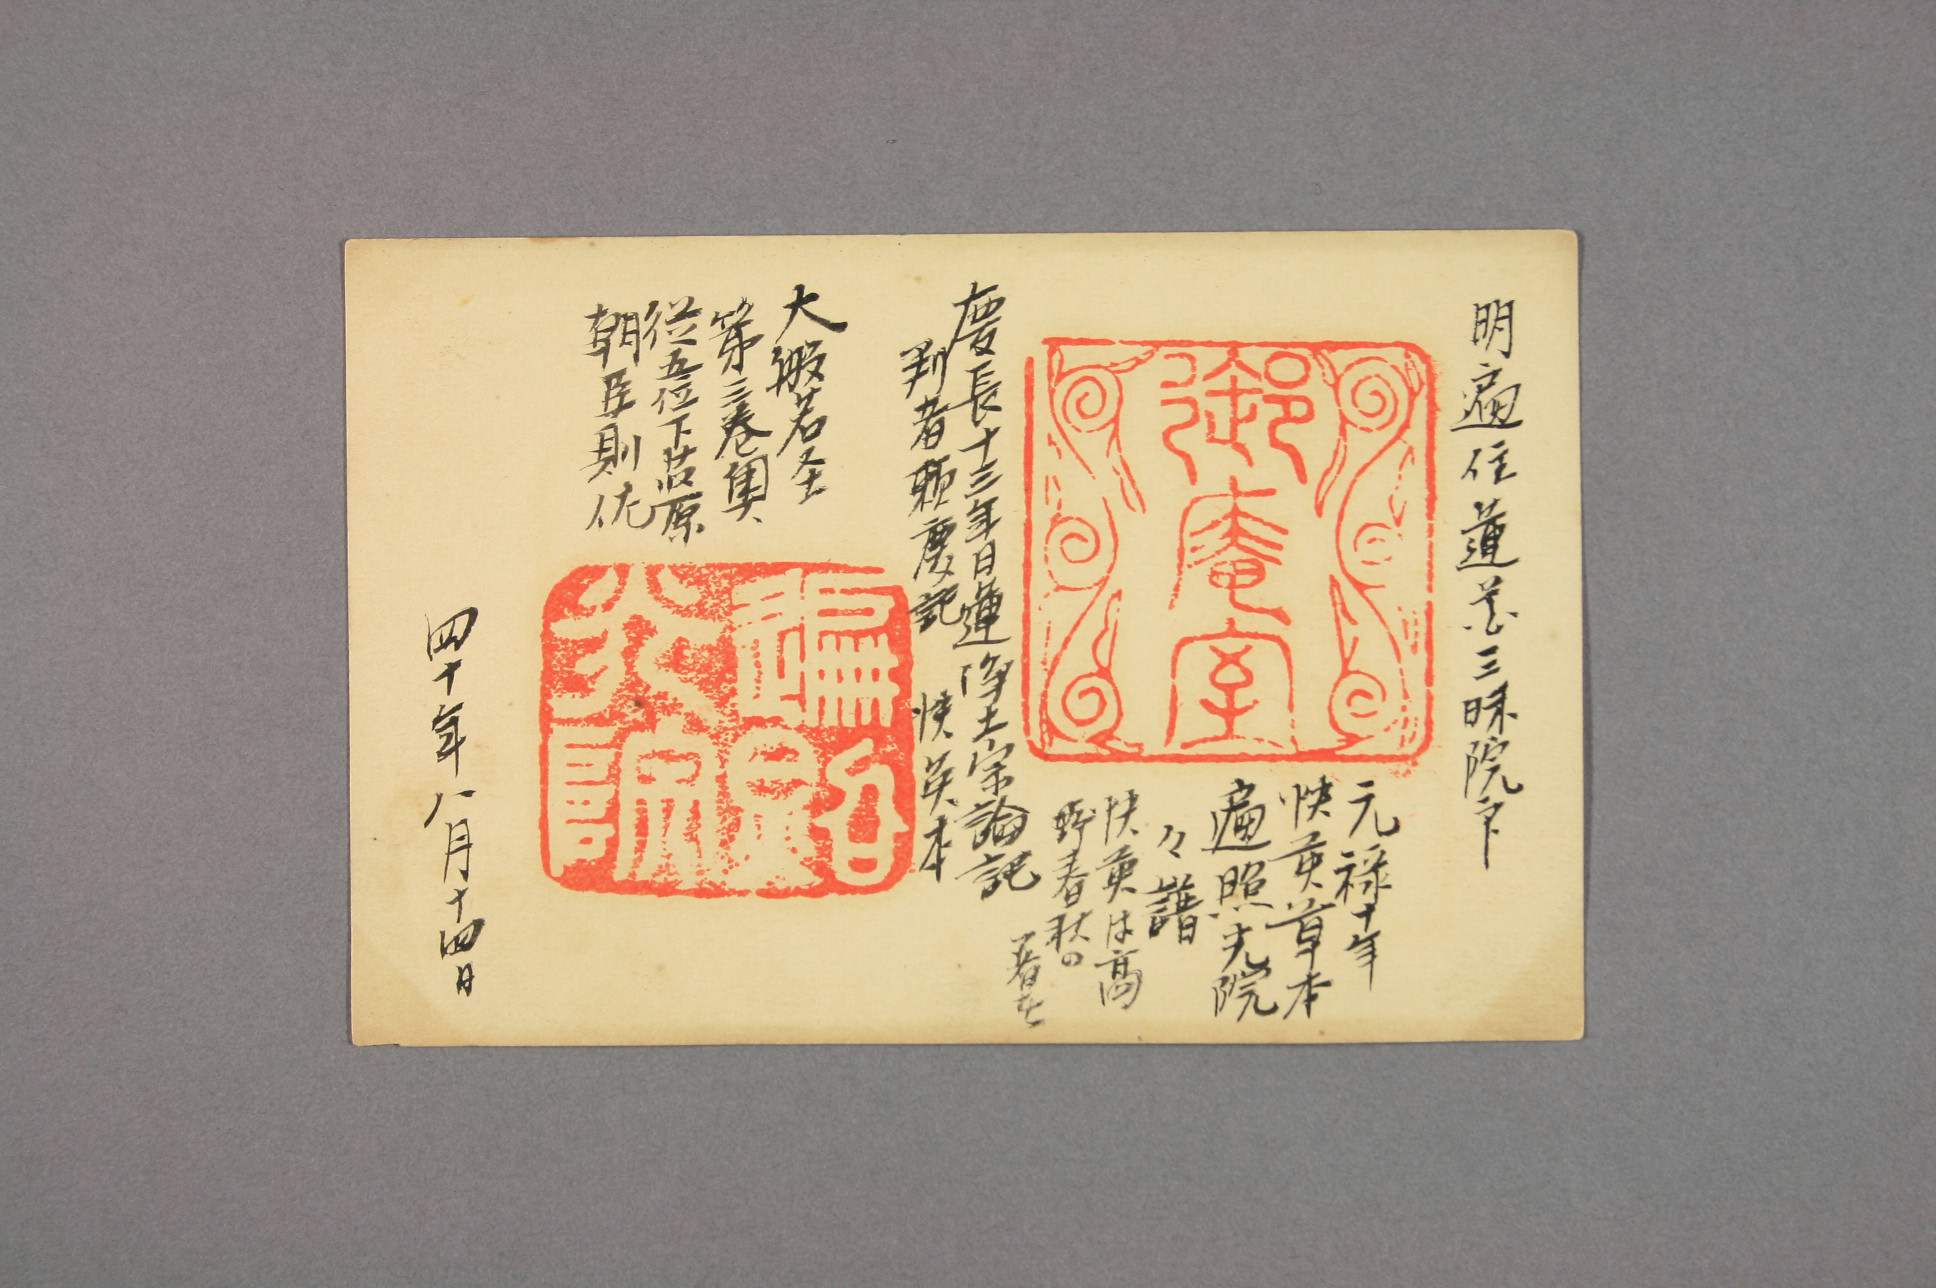 明遍住蓮花三昧院ノ下
御庵室
元禄十年
快英草本
遍照光院
々譜
快英は高
野春秋の
著者
慶長十三年日蓮浄土宗論記
判者頼慶記 快英本
大般若全
第三巻奥
従五位下
朝臣則佐
四十年八月十四日